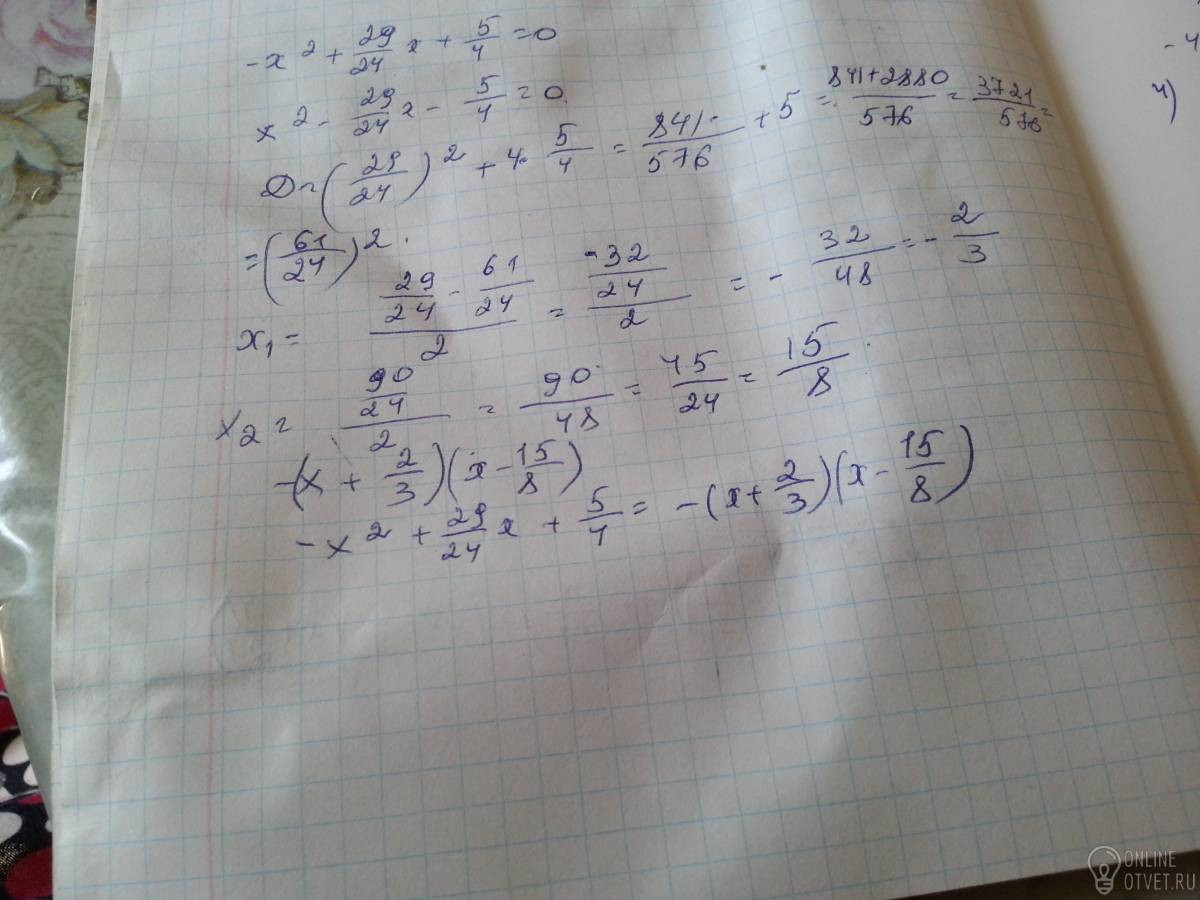 -x² + 29/24 x + 5/4 = 0
x² - 29/24 x - 5/4 = 0.
D = (29/24)² + 4· 5/4 = 841/576 + 5 = 841+2880/576 = 3721/576 =
= (61/24)².
x₁ = (29/24 - 61/24)/2 = (-32/24)/2 = - 32/48 = - 2/3
x₂ = (90/24)/2 = 90/48 = 45/24 = 15/8.
-(x + 2/3)(x - 15/8)
-x² + 29/24 x + 5/4 = -(x + 2/3)(x - 15/8)
-4
4)
ONLINE
OTVET.RU